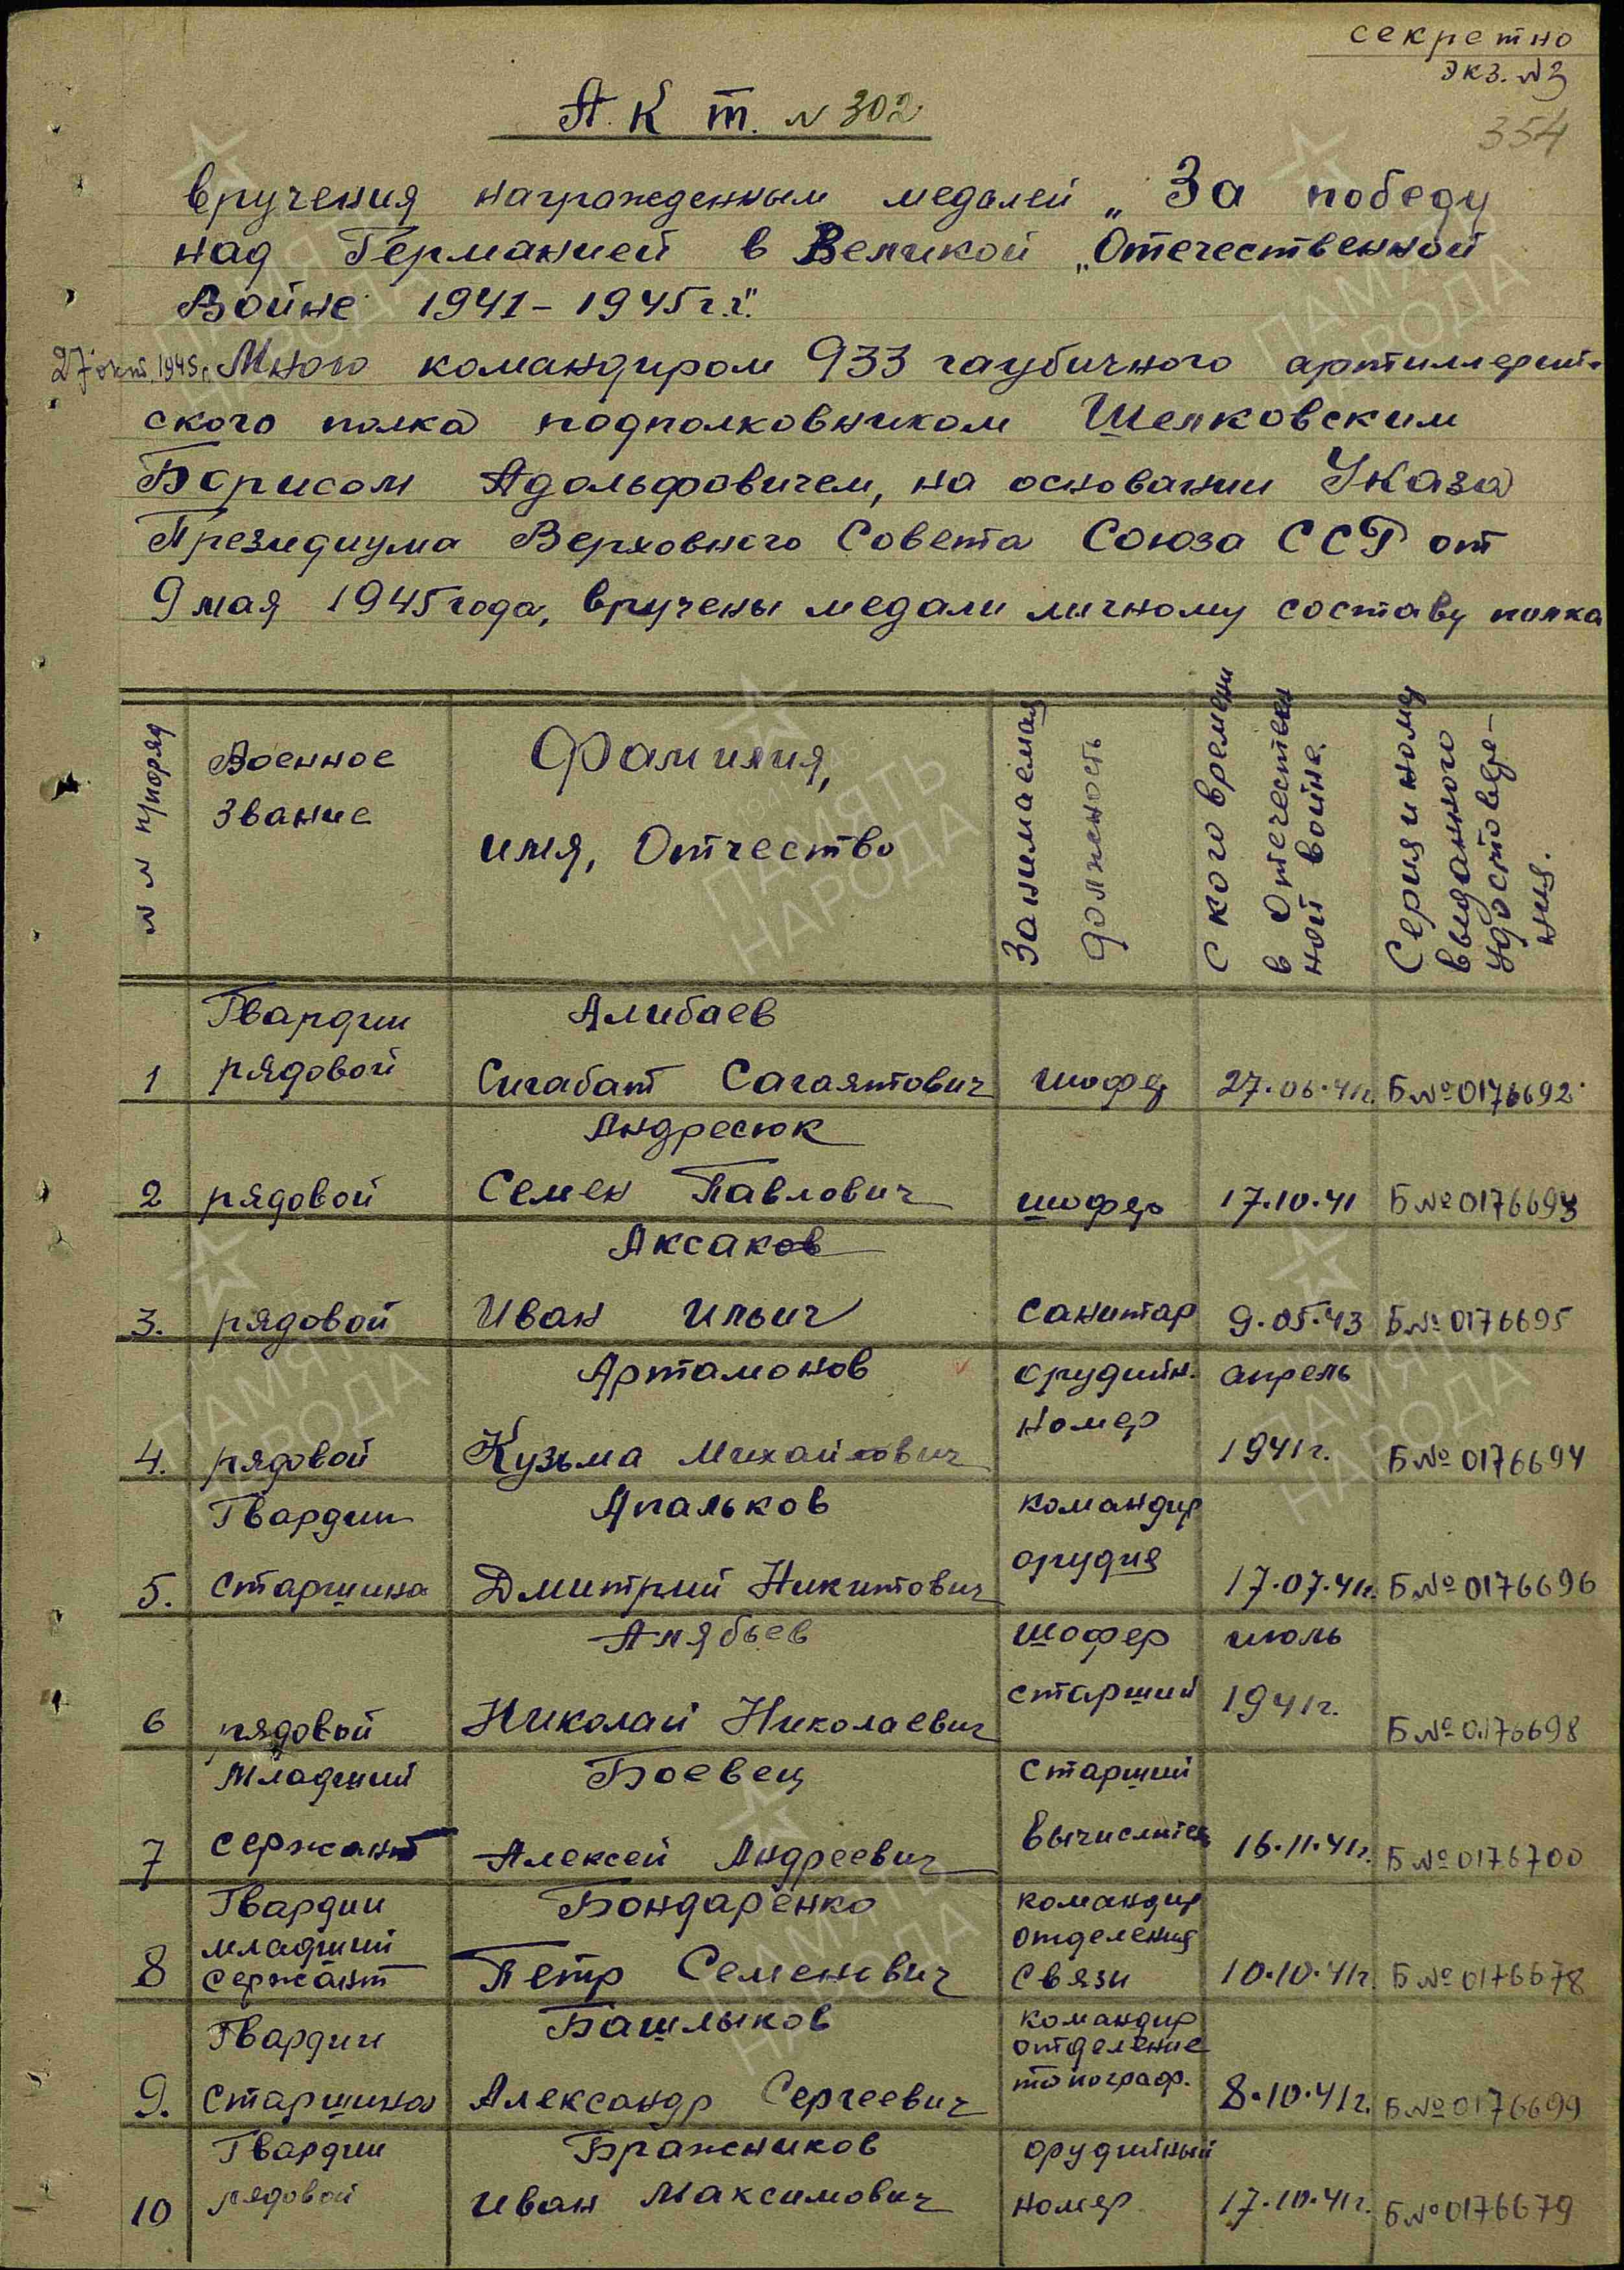 секретно
экз. №3
354
Акт. № 302
вручения награжденным медалей „За победу
над Германией в Великой „Отечественной
Войне 1941-1945 г.г."
27 окт. 1945 г. Мною командиром 933 гаубичного артиллерий-
ского полка подполковником Шелковским
Борисом Адольфовичем, на основании Указа
Президиума Верховного Совета Союза ССР от
9 мая 1945 года, вручены медали личному составу полка
№ № п/поряд
Военное звание
Фамилия, имя, Отчество
Занимаемая должность
С кого времени в Отечествен ной войне.
Серия и номер выданного удостовере- ния.
1 Гвардии рядовой Алибаев Сигабат Сагаятович шофер 27.06.41г. Б№0176692
2 рядовой Андресюк Семен Павлович шофер 17.10.41 Б№0176693
3. рядовой Аксаков Иван Ильич Санитар 9.05.43 Б№0176695
4. рядовой Артамонов Кузьма Михайлович орудийн. номер апрель 1941г. Б№0176694
5. Гвардии старшина Апальков Дмитрий Никитович командир орудия 17.07.41г. Б№0176696
6 рядовой Алябьев Николай Николаевич шофер старший июль 1941г. Б№0176698
7 Младший сержант Боевец Алексей Андреевич Старший вычислитель 16.11.41г. Б№0176700
8 Гвардии младший сержант Бондаренко Петр Семенович командир отделения связи 10.10.41г. Б№0176678
9. Гвардии старшина Башлыков Александр Сергеевич командир отделение топограф. 8.10.41г. Б№0176699
10 Гвардии рядовой Бражников Иван Максимович орудийный номер 17.10.41г. Б№0176679
ПАМЯТЬ
НАРОДА
ПАМЯТЬ
НАРОДА
ПАМЯТЬ
НАРОДА
ПАМЯТЬ
НАРОДА
ПАМЯТЬ
НАРОДА
ПАМЯТЬ
НАРОДА